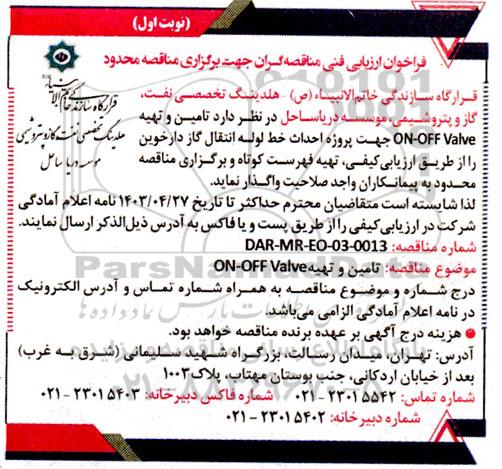 (نوبت اول)
فراخوان ارزیابی فنی مناقصه‌گران جهت برگزاری مناقصه محدود
قرارگاه سازندگی خاتم الانبیاء
هلدینگ تخصصی نفت گاز و پتروشیمی
موسسه دریا ساحل
قرارگاه سازندگی خاتم‌الانبیاء (ص) - هلدینگ تخصصی نفت،
گاز و پتروشیمی، موسسه دریاساحل در نظر دارد تامین و تهیه
ON-OFF Valve جهت پروژه احداث خط لوله انتقال گاز دارخوین
را از طریق ارزیابی‌کیفی، تهیه فهرست کوتاه و برگزاری مناقصه
محدود به پیمانکاران واجد صلاحیت واگذار نماید.
لذا شایسته است متقاضیان محترم حداکثر تا تاریخ ۱۴۰۳/۰۴/۲۷ نامه اعلام آمادگی
شرکت در ارزیابی کیفی را از طریق پست و یا فاکس به آدرس ذیل‌الذکر ارسال نمایند.
شماره مناقصه: DAR-MR-EO-03-0013
موضوع مناقصه: تامین و تهیه ON-OFF Valve
درج شماره و موضوع مناقصه به همراه شماره تماس و آدرس الکترونیک
در نامه اعلام آمادگی الزامی می‌باشد.
● هزینه درج آگهی بر عهده برنده مناقصه خواهد بود.
آدرس: تهران، میدان رسالت، بزرگراه شهید سلیمانی (شرق به غرب)
بعد از خیابان اردکانی، جنب بوستان مهتاب، پلاک ۱۰۰۳
شماره تماس: ۲۳۰۱۵۵۴۲ - ۰۲۱ شماره فاکس دبیرخانه: ۲۳۰۱۵۴۰۳ - ۰۲۱
شماره دبیرخانه: ۲۳۰۱۵۴۰۲ - ۰۲۱
ParsNamadData